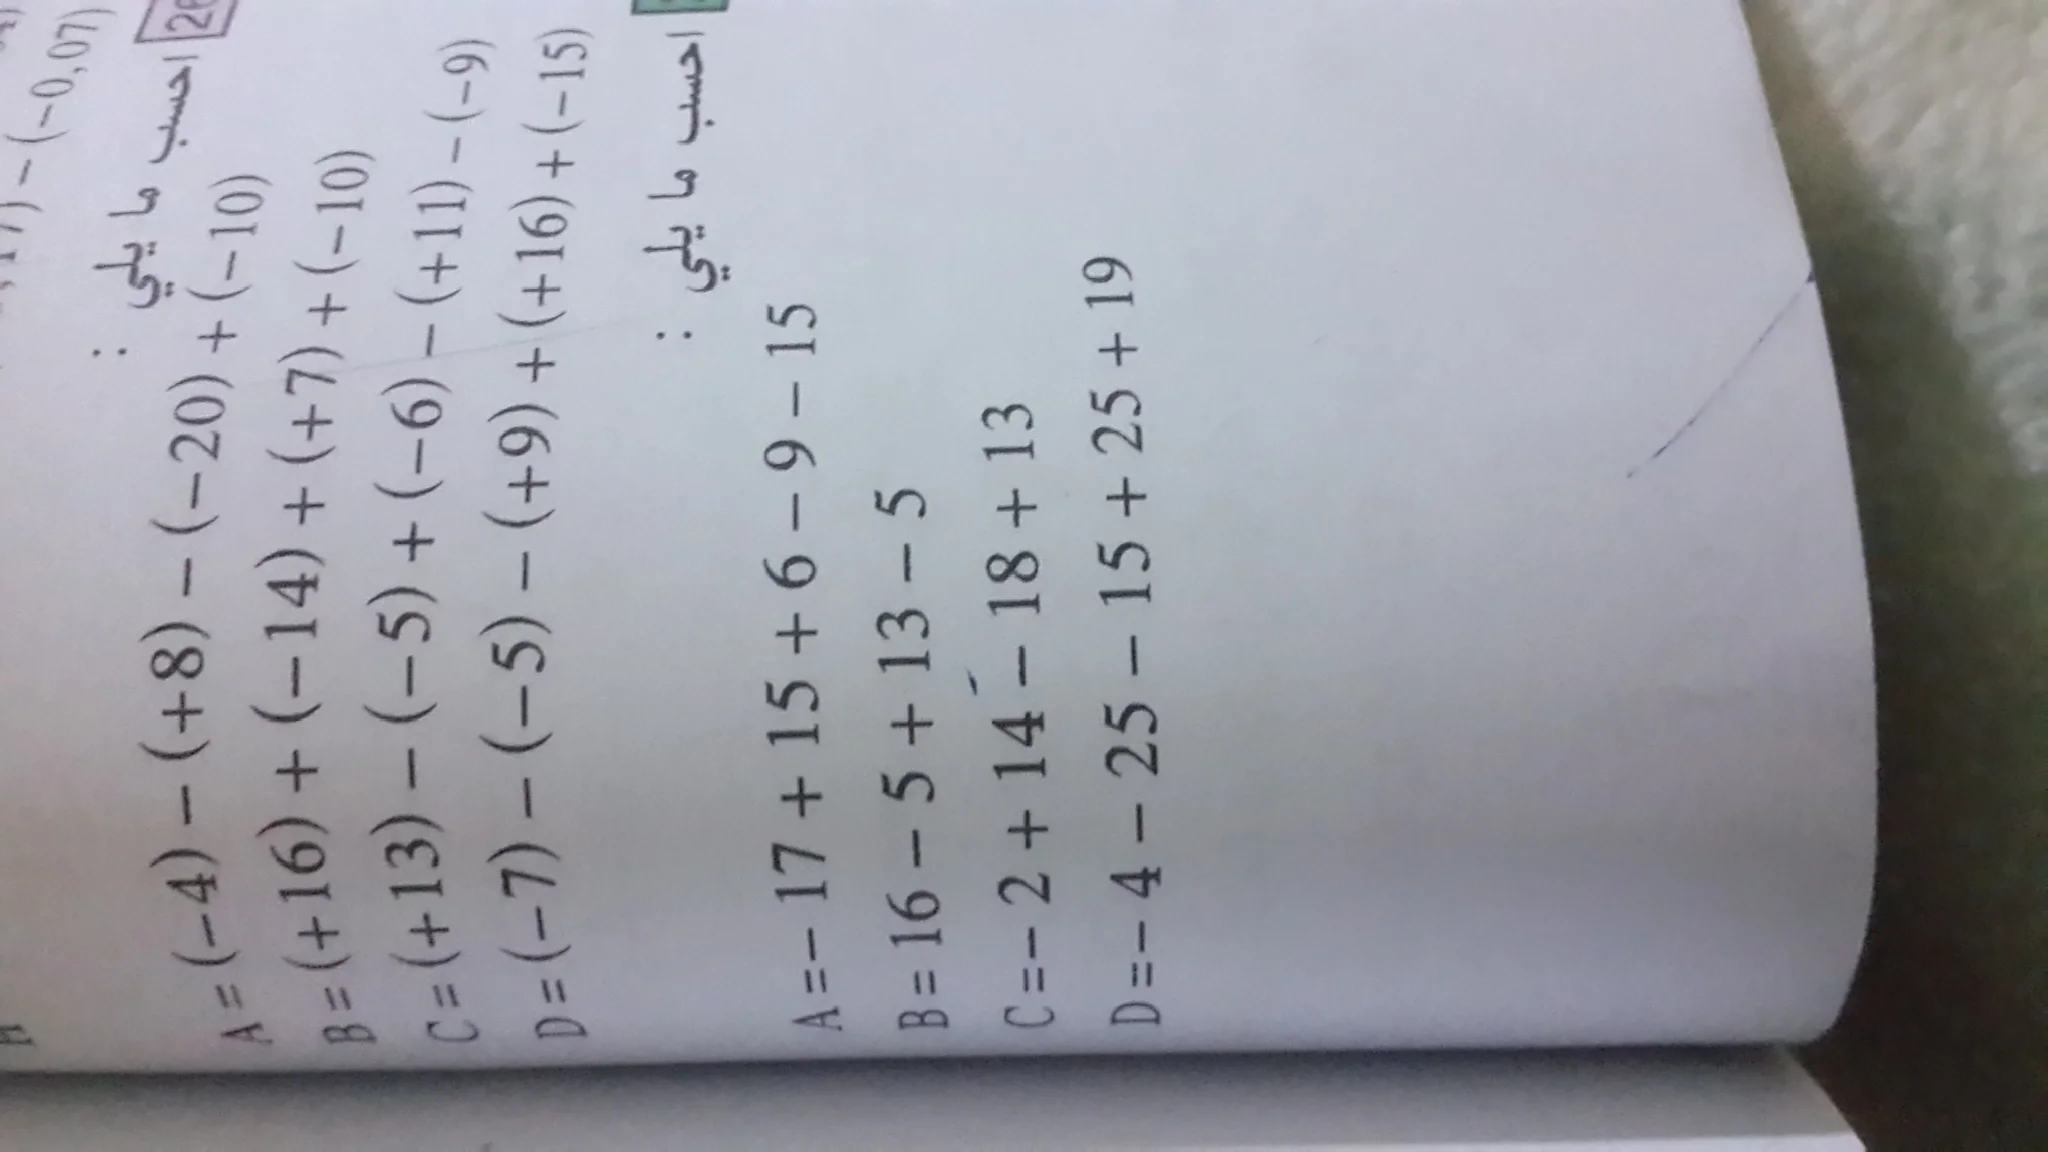 − (−0,07)
26 احسب ما يلي :
A = (−4) − (+8) − (−20) + (−10)
B = (+16) + (−14) + (+7) + (−10)
C = (+13) − (−5) + (−6) − (+11) − (−9)
D = (−7) − (−5) − (+9) + (+16) + (−15)
احسب ما يلي :
A = − 17 + 15 + 6 − 9 − 15
B = 16 − 5 + 13 − 5
C = − 2 + 14 − 18 + 13
D = − 4 − 25 − 15 + 25 + 19